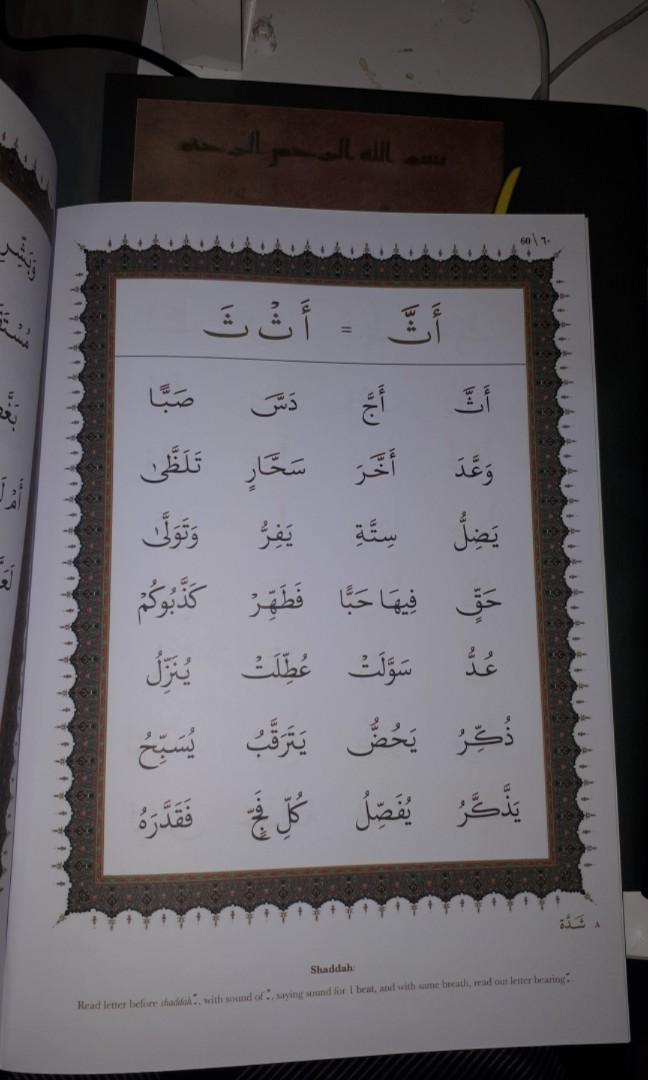 بسم الله الرحمن الرحيم
60 \ ٦٠
أَثَّ = أَثْ ثَ
أَثَّ أَجَّ دَسَّ صَبًّا
وَعَّدَ أَخَّرَ سَحَّارٍ تَلَظَّىٰ
يَضِلُّ سِتَّةِ يَفِرُّ وَتَوَلَّىٰ
حَقٍّ فِيهَا حَبًّا فَطَهِّرْ كَذَّبُوكُمْ
عُدُّ سَوَّلَتْ عُطِّلَتْ يُنَزِّلُ
ذُكِّرُ يَحُضُّ يَتَرَقَّبُ يُسَبِّحُ
يَذَّكَّرُ يُفَصِّلُ كُلِّ فَجٍّ فَقَدَّرَهُ
٨ شَدَّة
Shaddah:
Read letter before shaddah ّ, with sound of ْ, saying sound for 1 beat, and with same breath, read out letter bearing ّ.